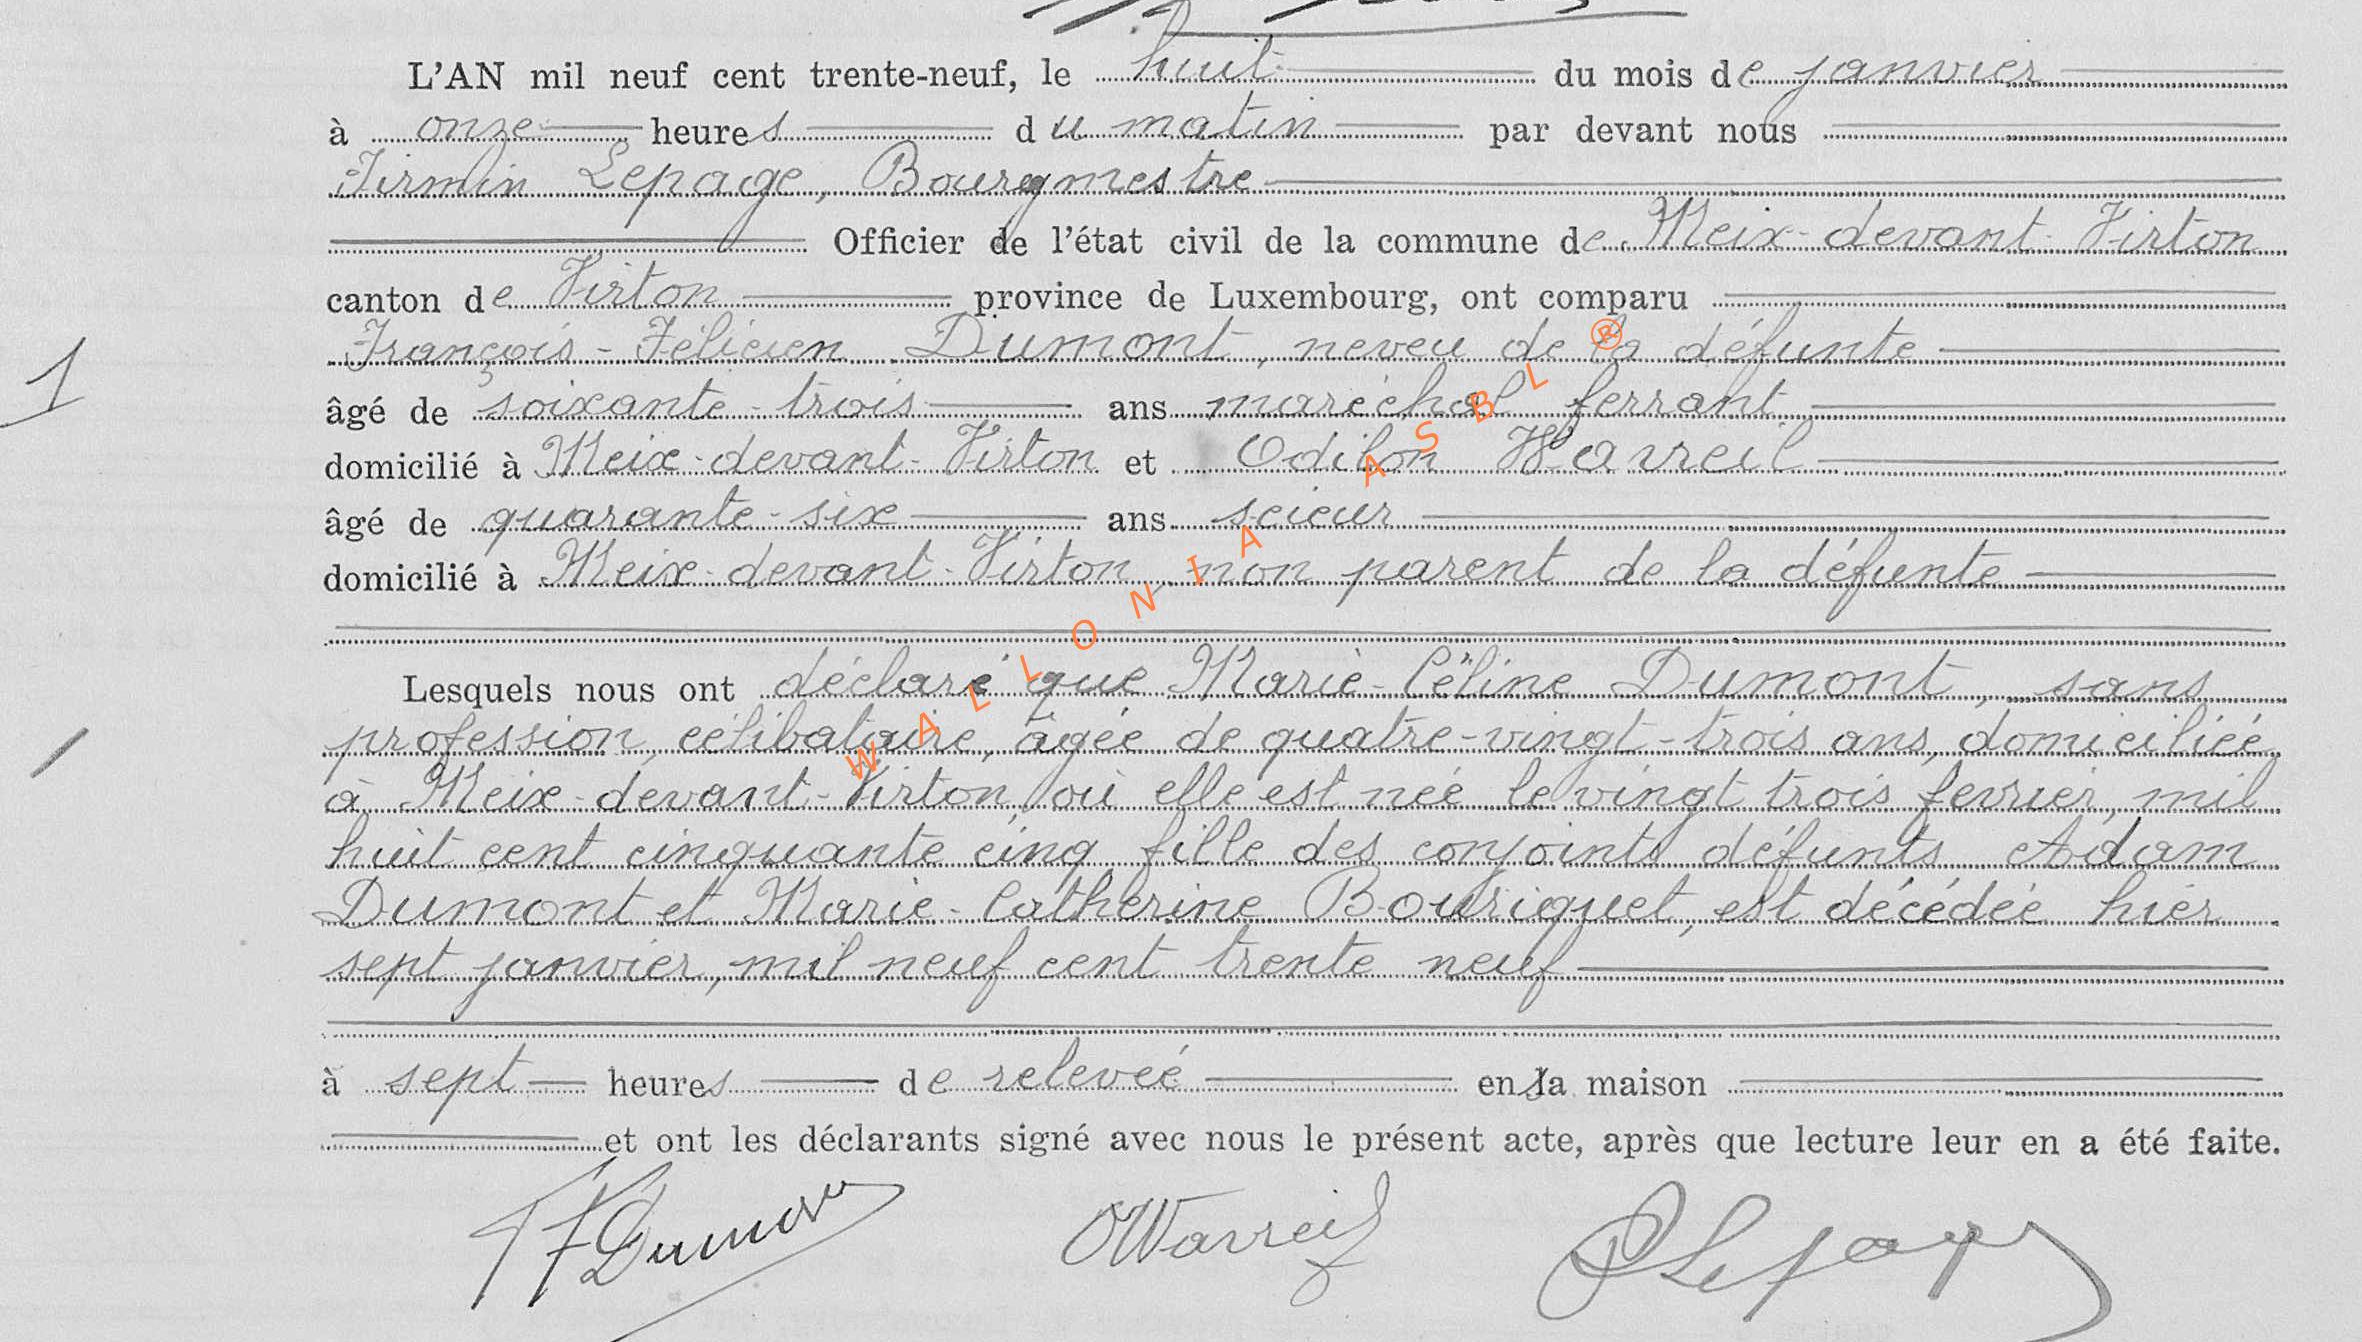 L'AN mil neuf cent trente-neuf, le huit du mois de janvier
à onze heures du matin par devant nous
Firmin Lepage, Bourgmestre
Officier de l'état civil de la commune de Meix-devant-Virton
canton de Virton province de Luxembourg, ont comparu
François-Félicien Dumont, neveu de la défunte
1
âgé de soixante-trois ans maréchal ferrant
domicilié à Meix-devant-Virton et Odilon Wavreil
âgé de quarante-six ans scieur
domicilié à Meix-devant-Virton, non parent de la défunte
Lesquels nous ont déclaré que Marie-Céline Dumont, sans
profession, célibataire, âgée de quatre-vingt-trois ans, domiciliée
à Meix-devant-Virton, où elle est née le vingt trois fevrier, mil
huit cent cinquante cinq fille des conjoints défunts Adam
Dumont et Marie-Catherine Bouriquet, est décédée hier
sept janvier, mil neuf cent trente neuf
à sept heures de relevée en sa maison
et ont les déclarants signé avec nous le présent acte, après que lecture leur en a été faite.
F Dumont OWavreil Lepage
WALLONIA ASBL ®